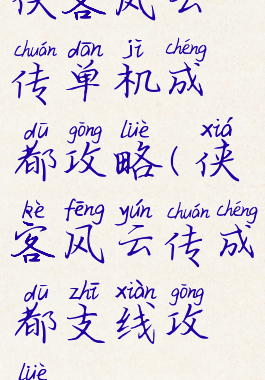 侠客风云
chuán dān jī chéng
传单机成
dū gōng lüè xiá
都攻略(侠
kè fēng yún chuán chéng
客风云传成
dū zhī xiàn gōng
都支线攻
lüè